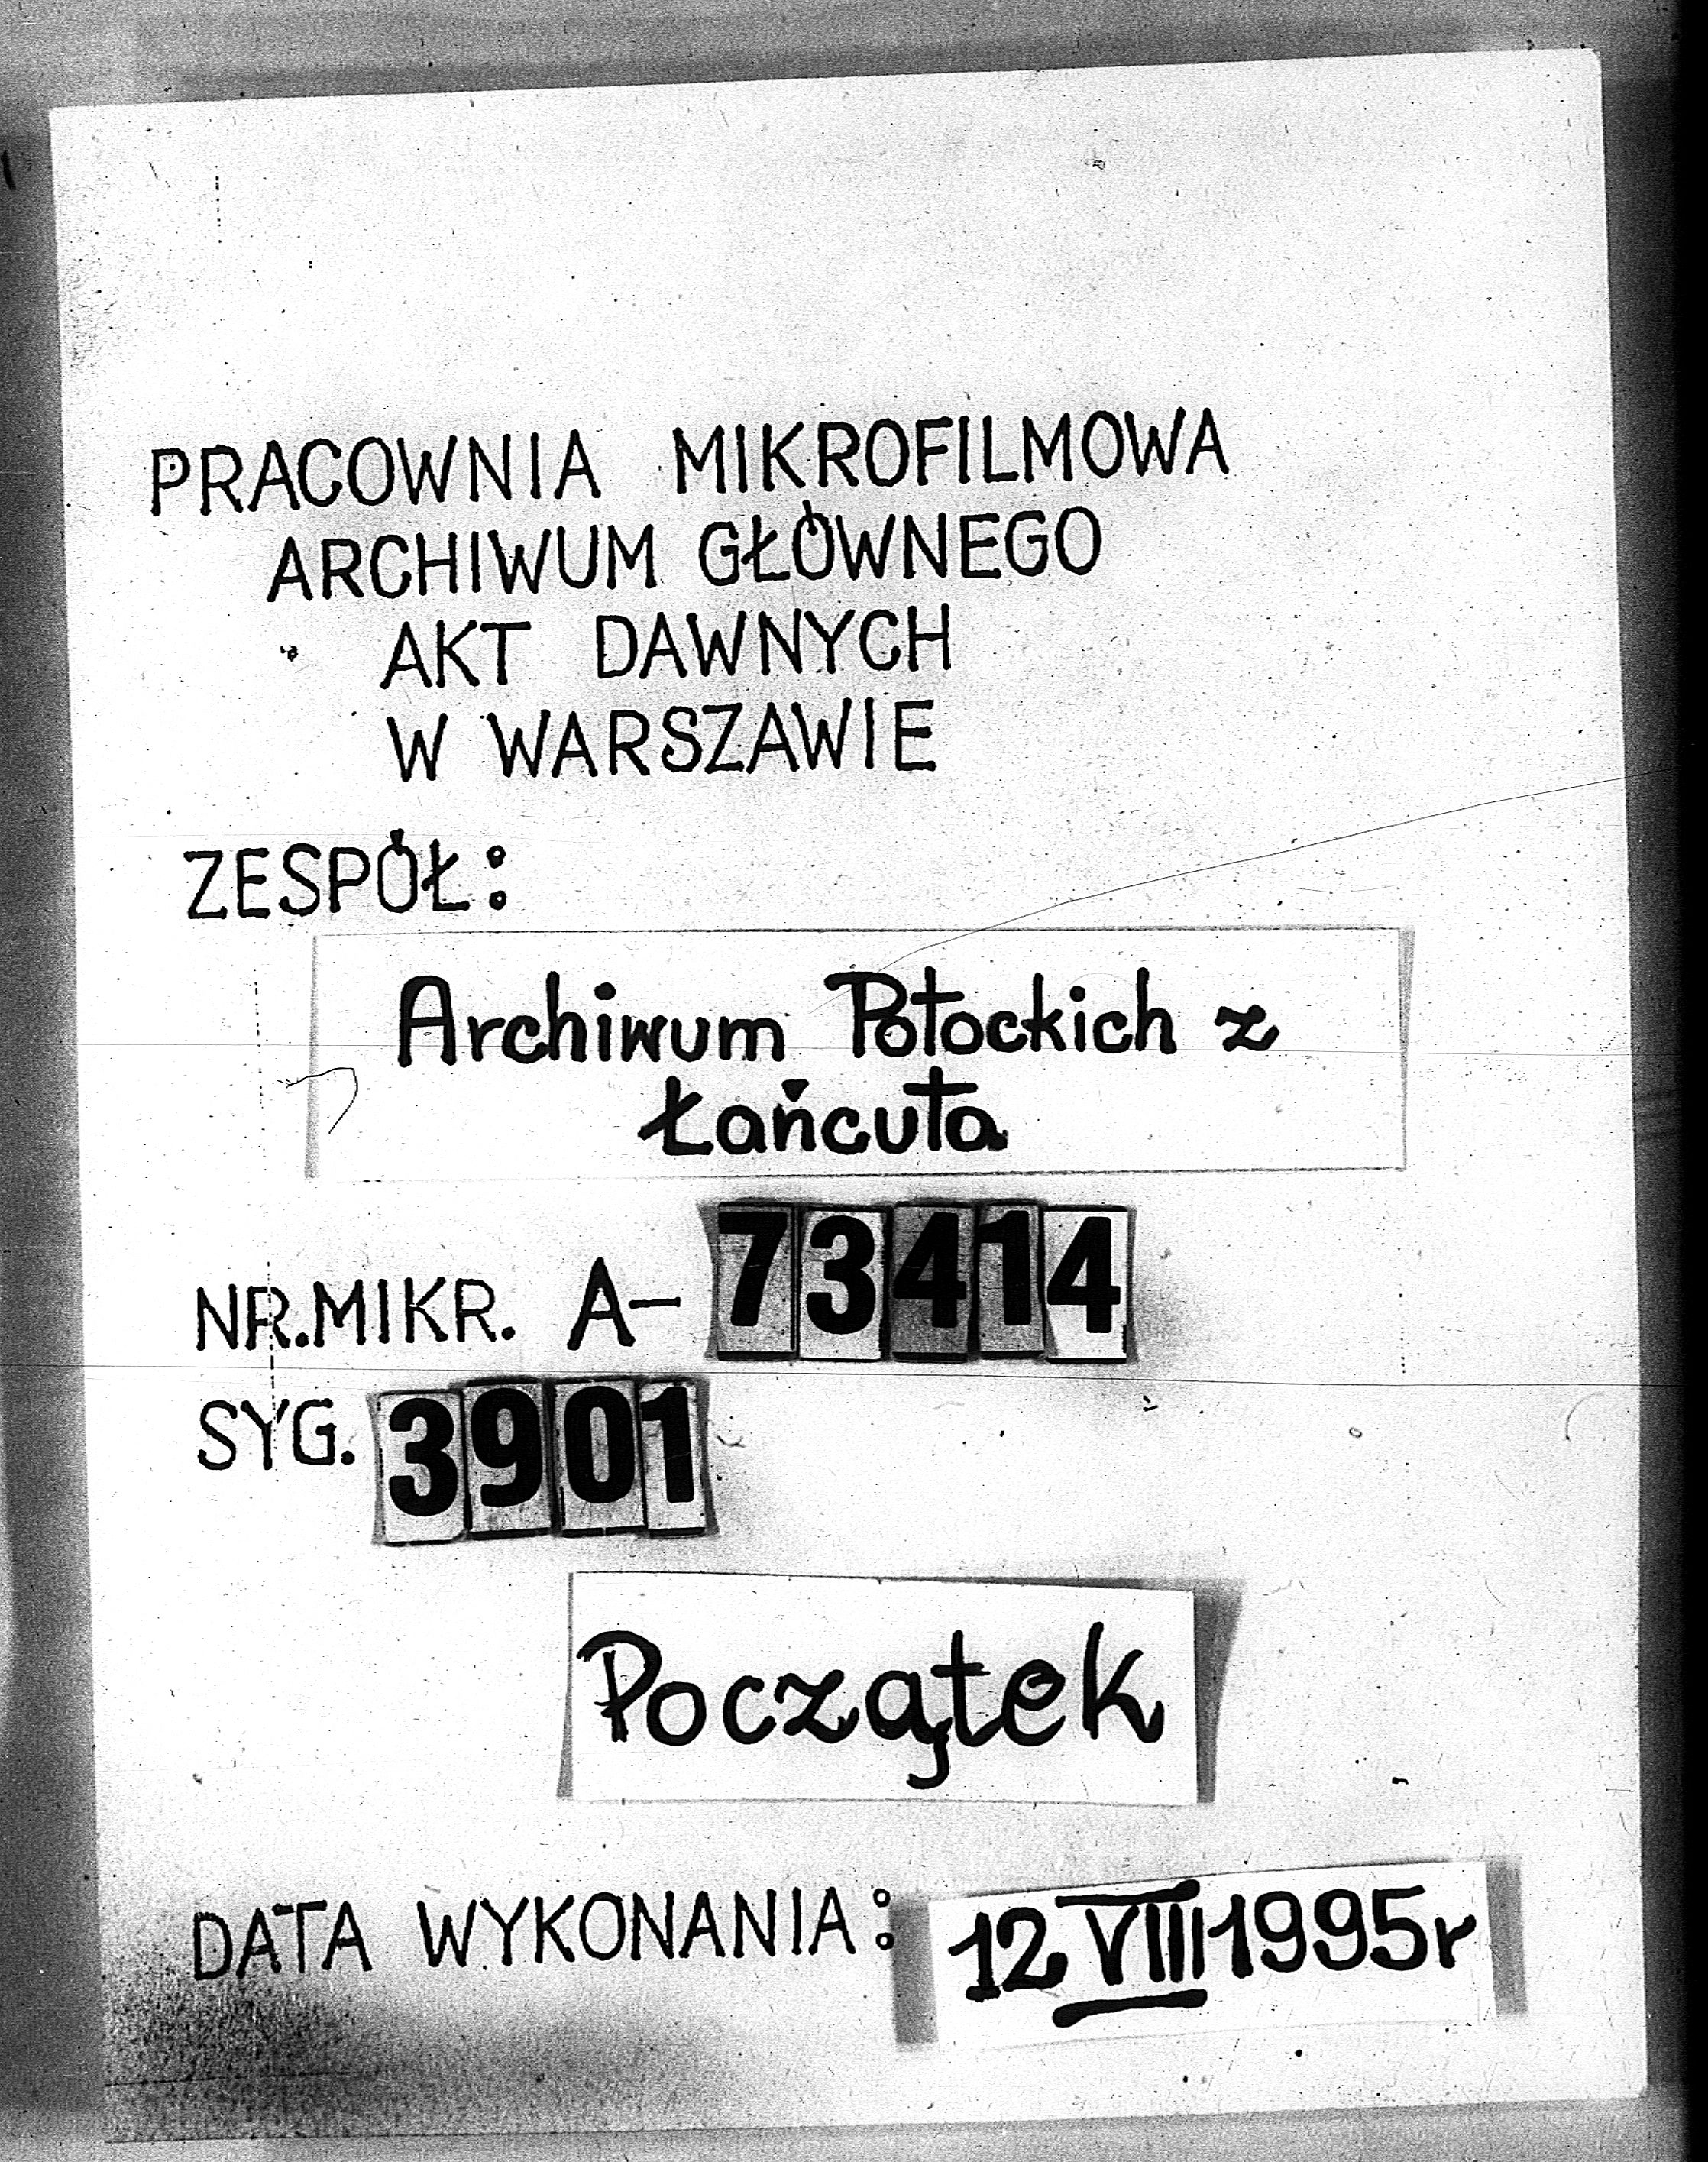 PRACOWNIA MIKROFILMOWA
ARCHIWUM GŁÓWNEGO
AKT DAWNYCH
W WARSZAWIE
ZESPÓŁ:
Archiwum Potockich z
Łańcuta
NR.MIKR. A-73414
SYG. 3901
Początek
DATA WYKONANIA: 12 VIII 1995r